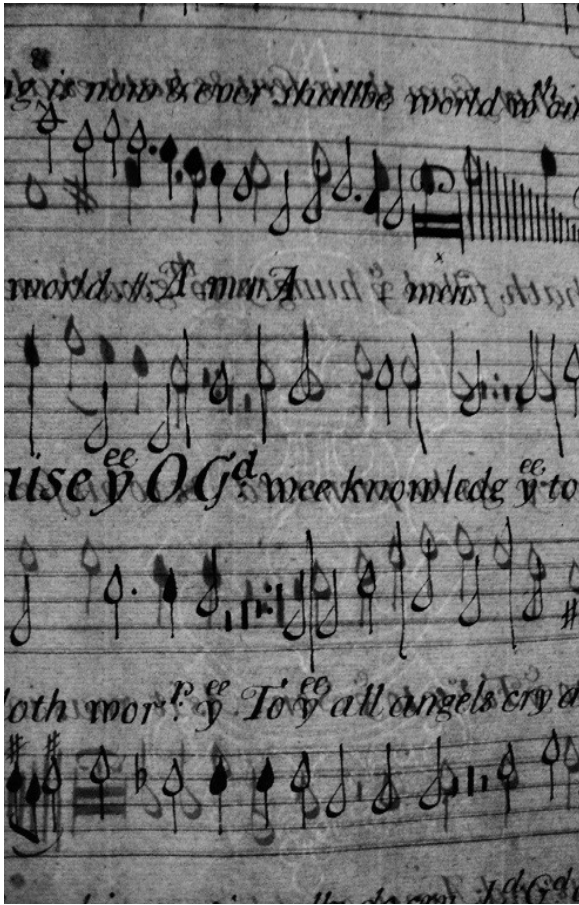 is now & ever shall be world wth ou
world :||: A men A men
aise yee O Gd: wee knowledg yee to
doth worp: yee To yee all angels cry a